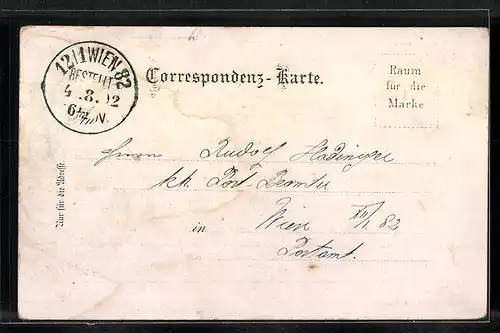 12/1 WIEN 82
BESTELLT
4.8.02
6½N.
Correspondenz-Karte.
Raum
für die
Marke
Nur für die Adresse.
Herrn Rudolf
kk. Post-Beamter
in Wien XII/1 82
Postamt.